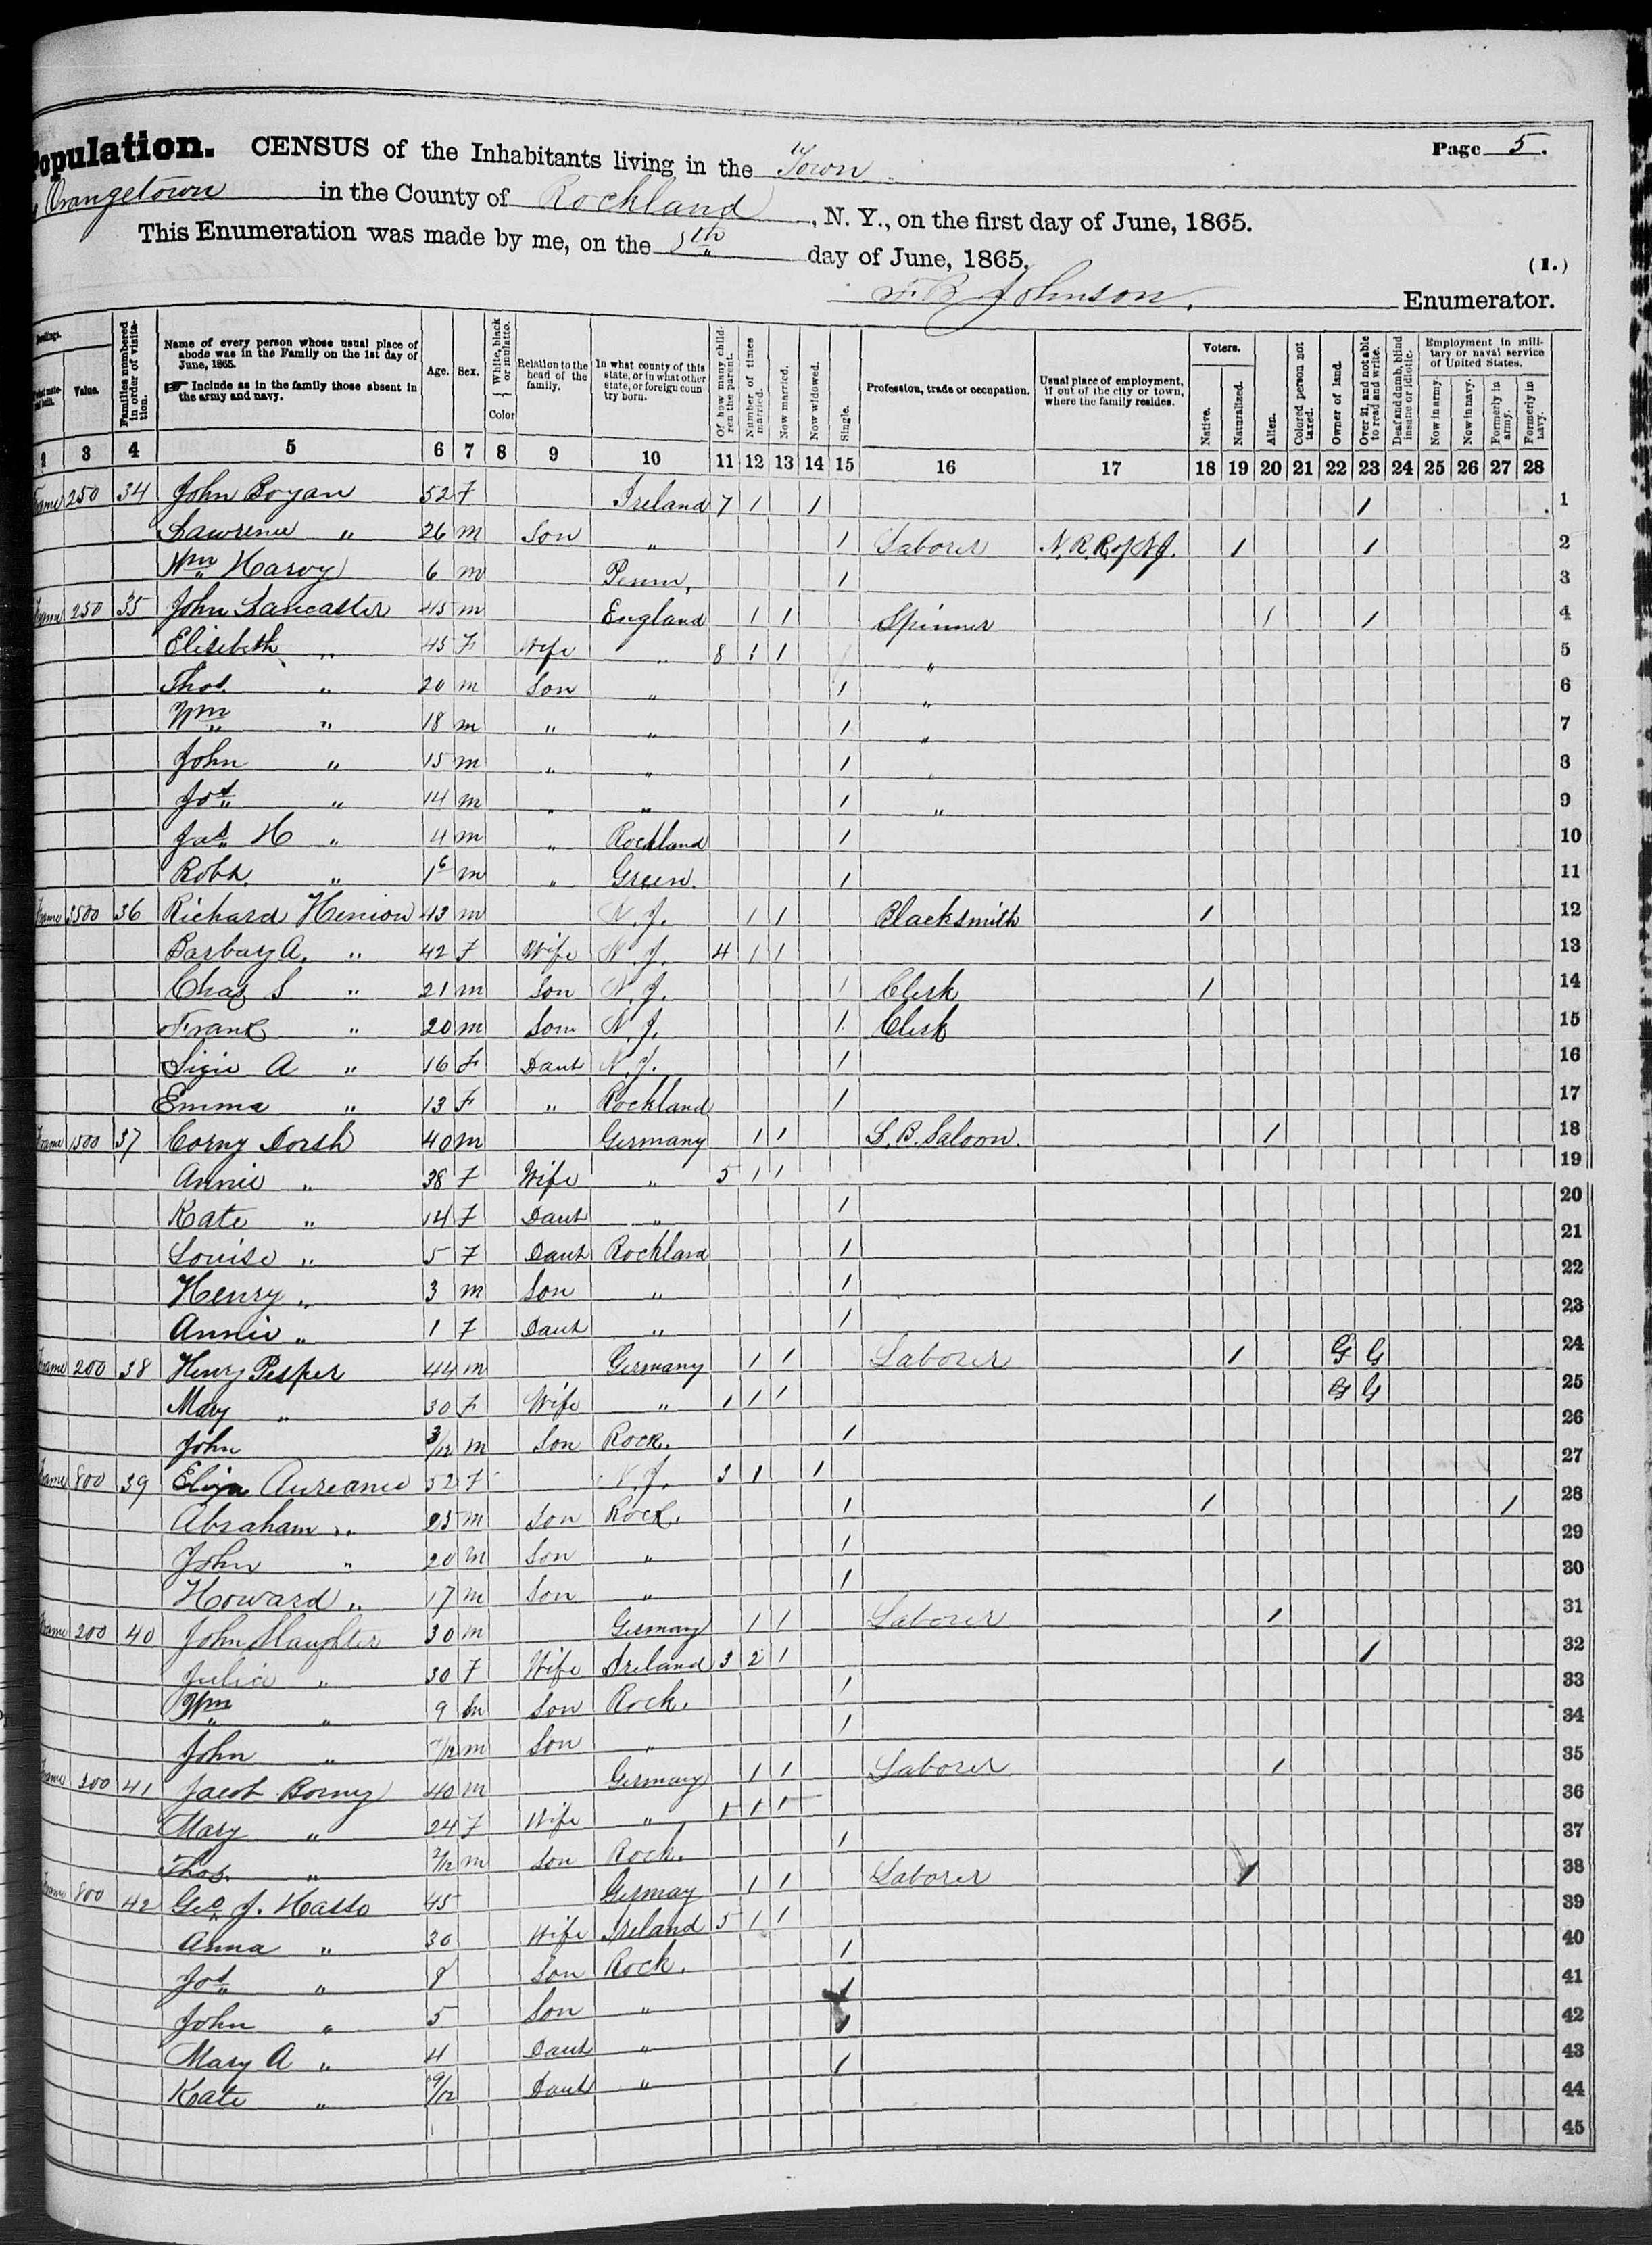 Population. CENSUS of the Inhabitants living in the Town Page 5.
Orangetown in the County of Rockland, N. Y., on the first day of June, 1865.
This Enumeration was made by me, on the 5th day of June, 1865. (1.)
F. B. Johnson. Enumerator.
Dwellings. Value. Families numbered in order of visitation. Name of every person whose usual place of abode was in the Family on the 1st day of June, 1865. Include as in the family those absent in the army and navy. Age. Sex. White, black or mulatto. Color Relation to the head of the family. In what county of this state, or in what other state, or foreign country born. Of how many children the parent. Number of times married. Now married. Now widowed. Single. Profession, trade or occupation. Usual place of employment, if out of the city or town, where the family resides. Voters. Native. Naturalized. Alien. Colored person not taxed. Owner of land. Over 21, and not able to read and write. Deaf and dumb, blind insane or idiotic. Employment in military or naval service of United States. Now in army. Now in navy. Formerly in army. Formerly in navy.
2 3 4 5 6 7 8 9 10 11 12 13 14 15 16 17 18 19 20 21 22 23 24 25 26 27 28
Frame 250 34 John Boyan 52 F Ireland 7 1 1 1 1
Lawrence " 26 m Son " 1 Laborer N. R. R. of N J. 1 1 2
Wm Harvy 6 m Penn. 1 3
Frame 250 35 John Lancaster 45 m England 1 1 Spinner 1 1 4
Elisebeth " 45 F Wife " 8 1 1 " 5
Thos. " 20 m Son " 1 " 6
Wm " 18 m " " 1 " 7
John " 15 m " " 1 " 8
Jos " 14 m " " 1 " 9
Jas H " 4 m " Rockland 1 10
Robt. " 1 6 m " Green. 1 11
Frame 3500 36 Richard Henion 43 m N. J. 1 1 Blacksmith 1 12
Barbary A. " 42 F Wife N. J. 4 1 1 13
Chas S " 21 m Son N. J. 1 Clerk 1 14
Frank " 20 m Son N. J. 1 Clerk 15
Sizie A " 16 F Daut N. J. 1 16
Emma " 13 F " Rockland 1 17
Frame 1500 37 Corny Dorsh 40 m Germany 1 1 L. B. Saloon. 1 18
Annie " 38 F Wife " 5 1 1 19
Kate " 14 F Daut " 1 20
Louise " 5 F Daut Rockland 1 21
Henry " 3 m Son " 1 22
Annie " 1 F Daut " 1 23
Frame 200 38 Henry Pesper 44 m Germany 1 1 Laborer 1 G G 24
Mary " 30 F Wife " 1 1 1 G G 25
John 3/12 m Son Rock. 1 26
Frame 800 39 Eliza Aureance 52 F N. J. 3 1 1 27
Abraham " 23 m Son Rock. 1 1 1 28
John " 20 m Son " 1 29
Howard " 17 m Son " 1 30
Frame 200 40 John Slaughter 30 m Germany 1 1 Laborer 1 31
Julia " 30 F Wife Ireland 3 2 1 1 32
Wm " 9 m Son Rock. 1 33
John " 7/12 m Son " 1 34
Frame 300 41 Jacob Borny 40 m Germany 1 1 Laborer 1 35
Mary " 24 F Wife " 1 1 1 36
Thos. " 2/12 m Son Rock. 1 37
Frame 800 42 Geo J. Hasso 45 Germay 1 1 Laborer 1 38
Anna " 30 Wife Ireland 5 1 1 39
Jos " 8 Son Rock. 1 40
John " 5 Son " 1 41
Mary A " 4 Daut " 1 42
Kate " 9/12 Daut " 1 43
44
45